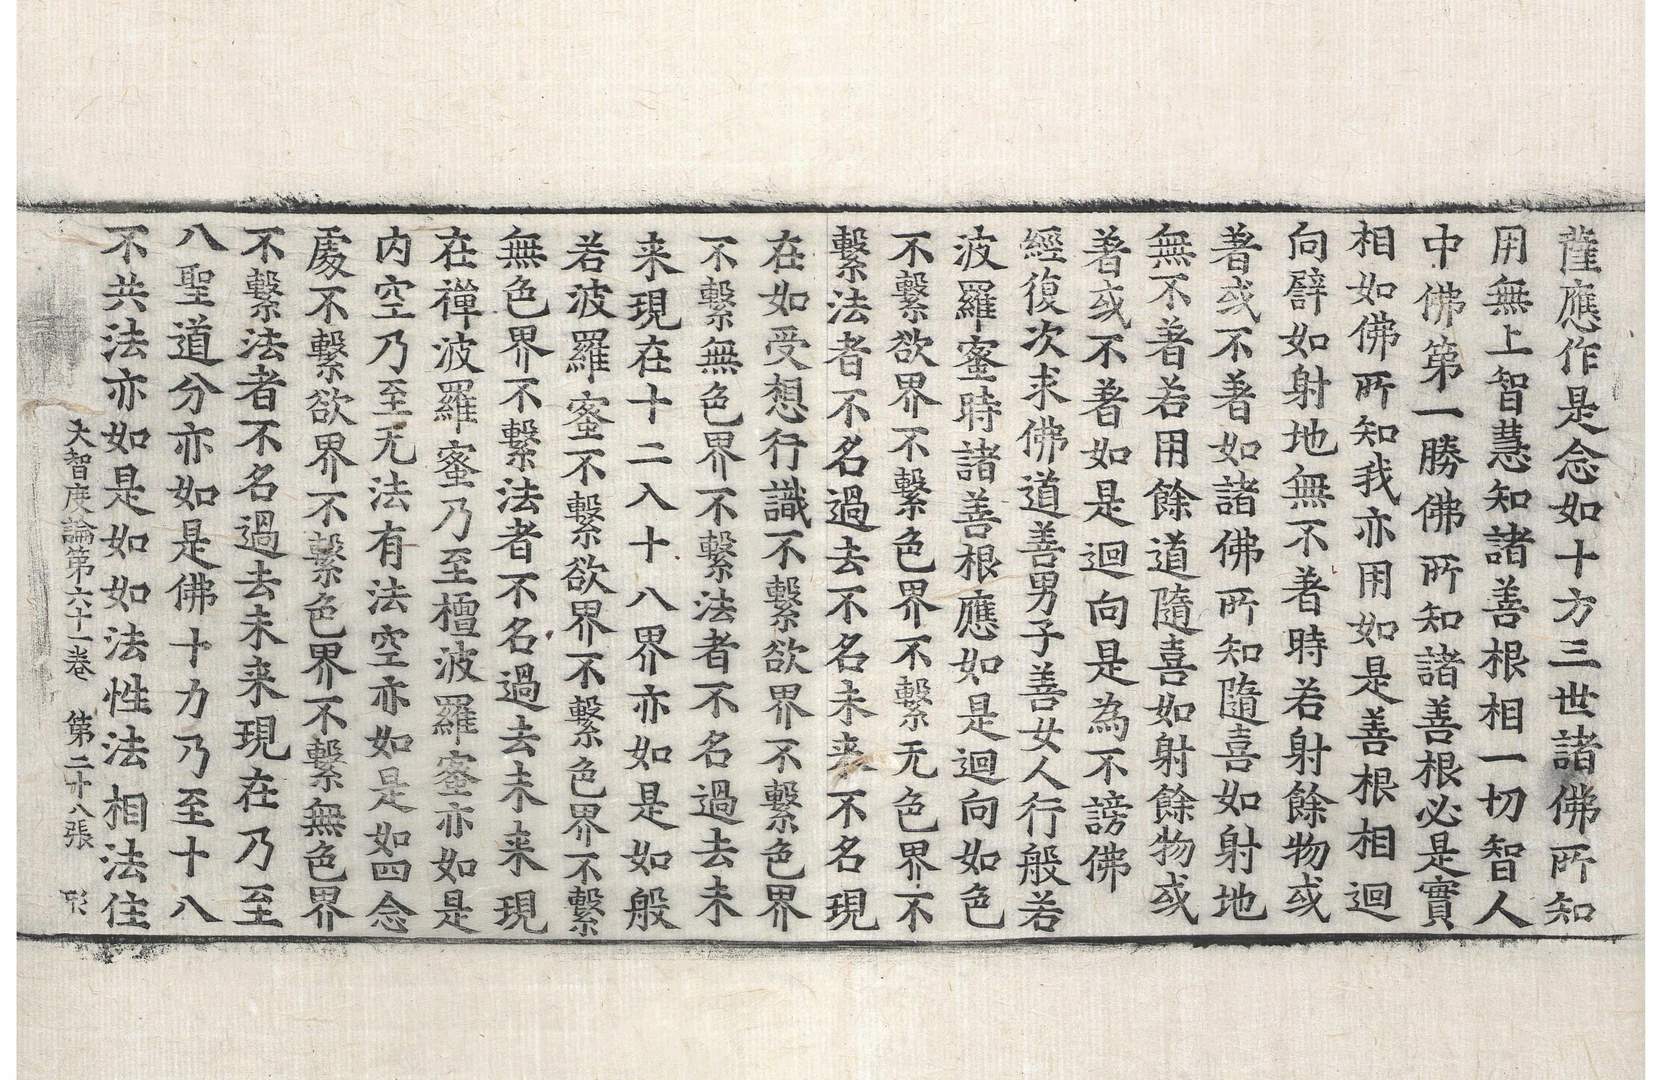 薩應作是念如十方三世諸佛所知
用無上智慧知諸善根相一切智人
中佛第一勝佛所知諸善根必是實
相如佛所知我亦用如是善根相迴
向譬如射地無不著時若射餘物或
著或不著如諸佛所知隨喜如射地
無不著若用餘道隨喜如射餘物或
著或不著如是迴向是為不謗佛
經復次求佛道善男子善女人行般若
波羅蜜時諸善根應如是迴向如色
不繫欲界不繫色界不繫无色界不
繫法者不名過去不名未来不名現
在如受想行識不繫欲界不繫色界
不繫無色界不繫法者不名過去未
来現在十二入十八界亦如是如般
若波羅蜜不繫欲界不繫色界不繫
無色界不繫法者不名過去未来現
在禪波羅蜜乃至檀波羅蜜亦如是
內空乃至无法有法空亦如是如四念
處不繫欲界不繫色界不繫無色界
不繫法者不名過去未来現在乃至
八聖道分亦如是佛十力乃至十八
不共法亦如是如如法性法相法住
大智度論第六十一卷　第二十八張　形